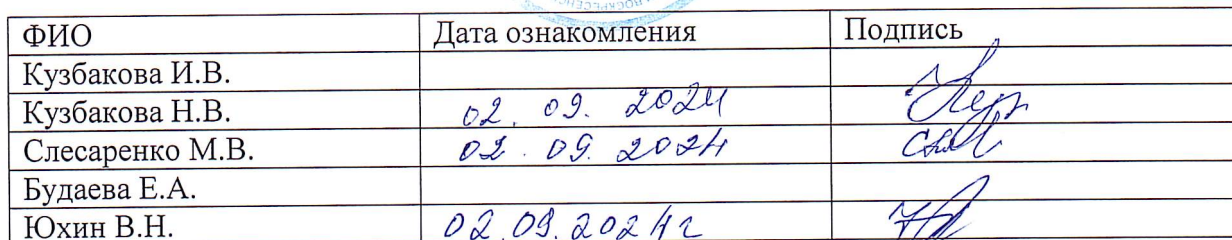 ФИО Дата ознакомления Подпись
Кузбакова И.В.
Кузбакова Н.В. 02. 09. 2024
Слесаренко М.В. 02. 09. 2024
Будаева Е.А.
Юхин В.Н. 02.09.2024г